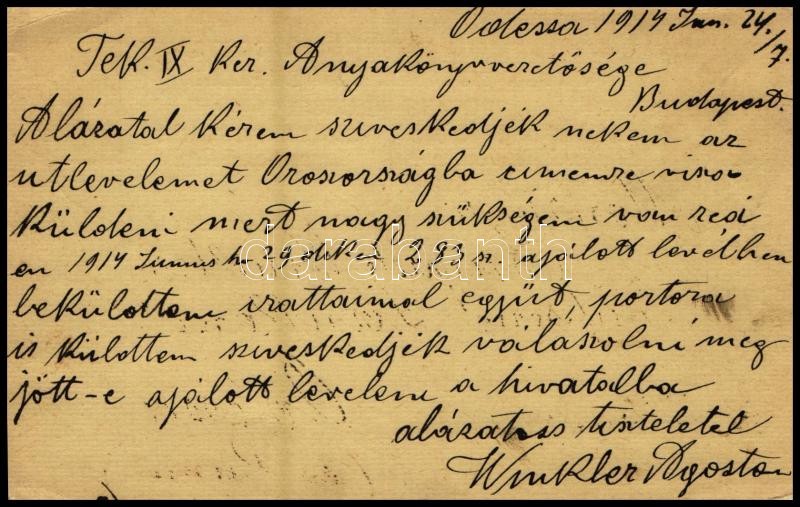 Odessa 1914 Jun. 24./7.
Tek. IX Ker. Anyakönyvvezetősége
Budapest.
Alázatal kérem sziveskedjék nekem az
utlevelemet Oroszországba cimemre visza
Küldeni mert nagy szükségem van reá
en 1914 Junius hó 293 sz. ajálott levélben
beküldöttem irattaimal együt, portora
is küldttem sziveskedjék válaszolni meg
jött-e ajálott levelem a hivatalba
alázatoss tisztelettel
Winkler Agoston
darabanth